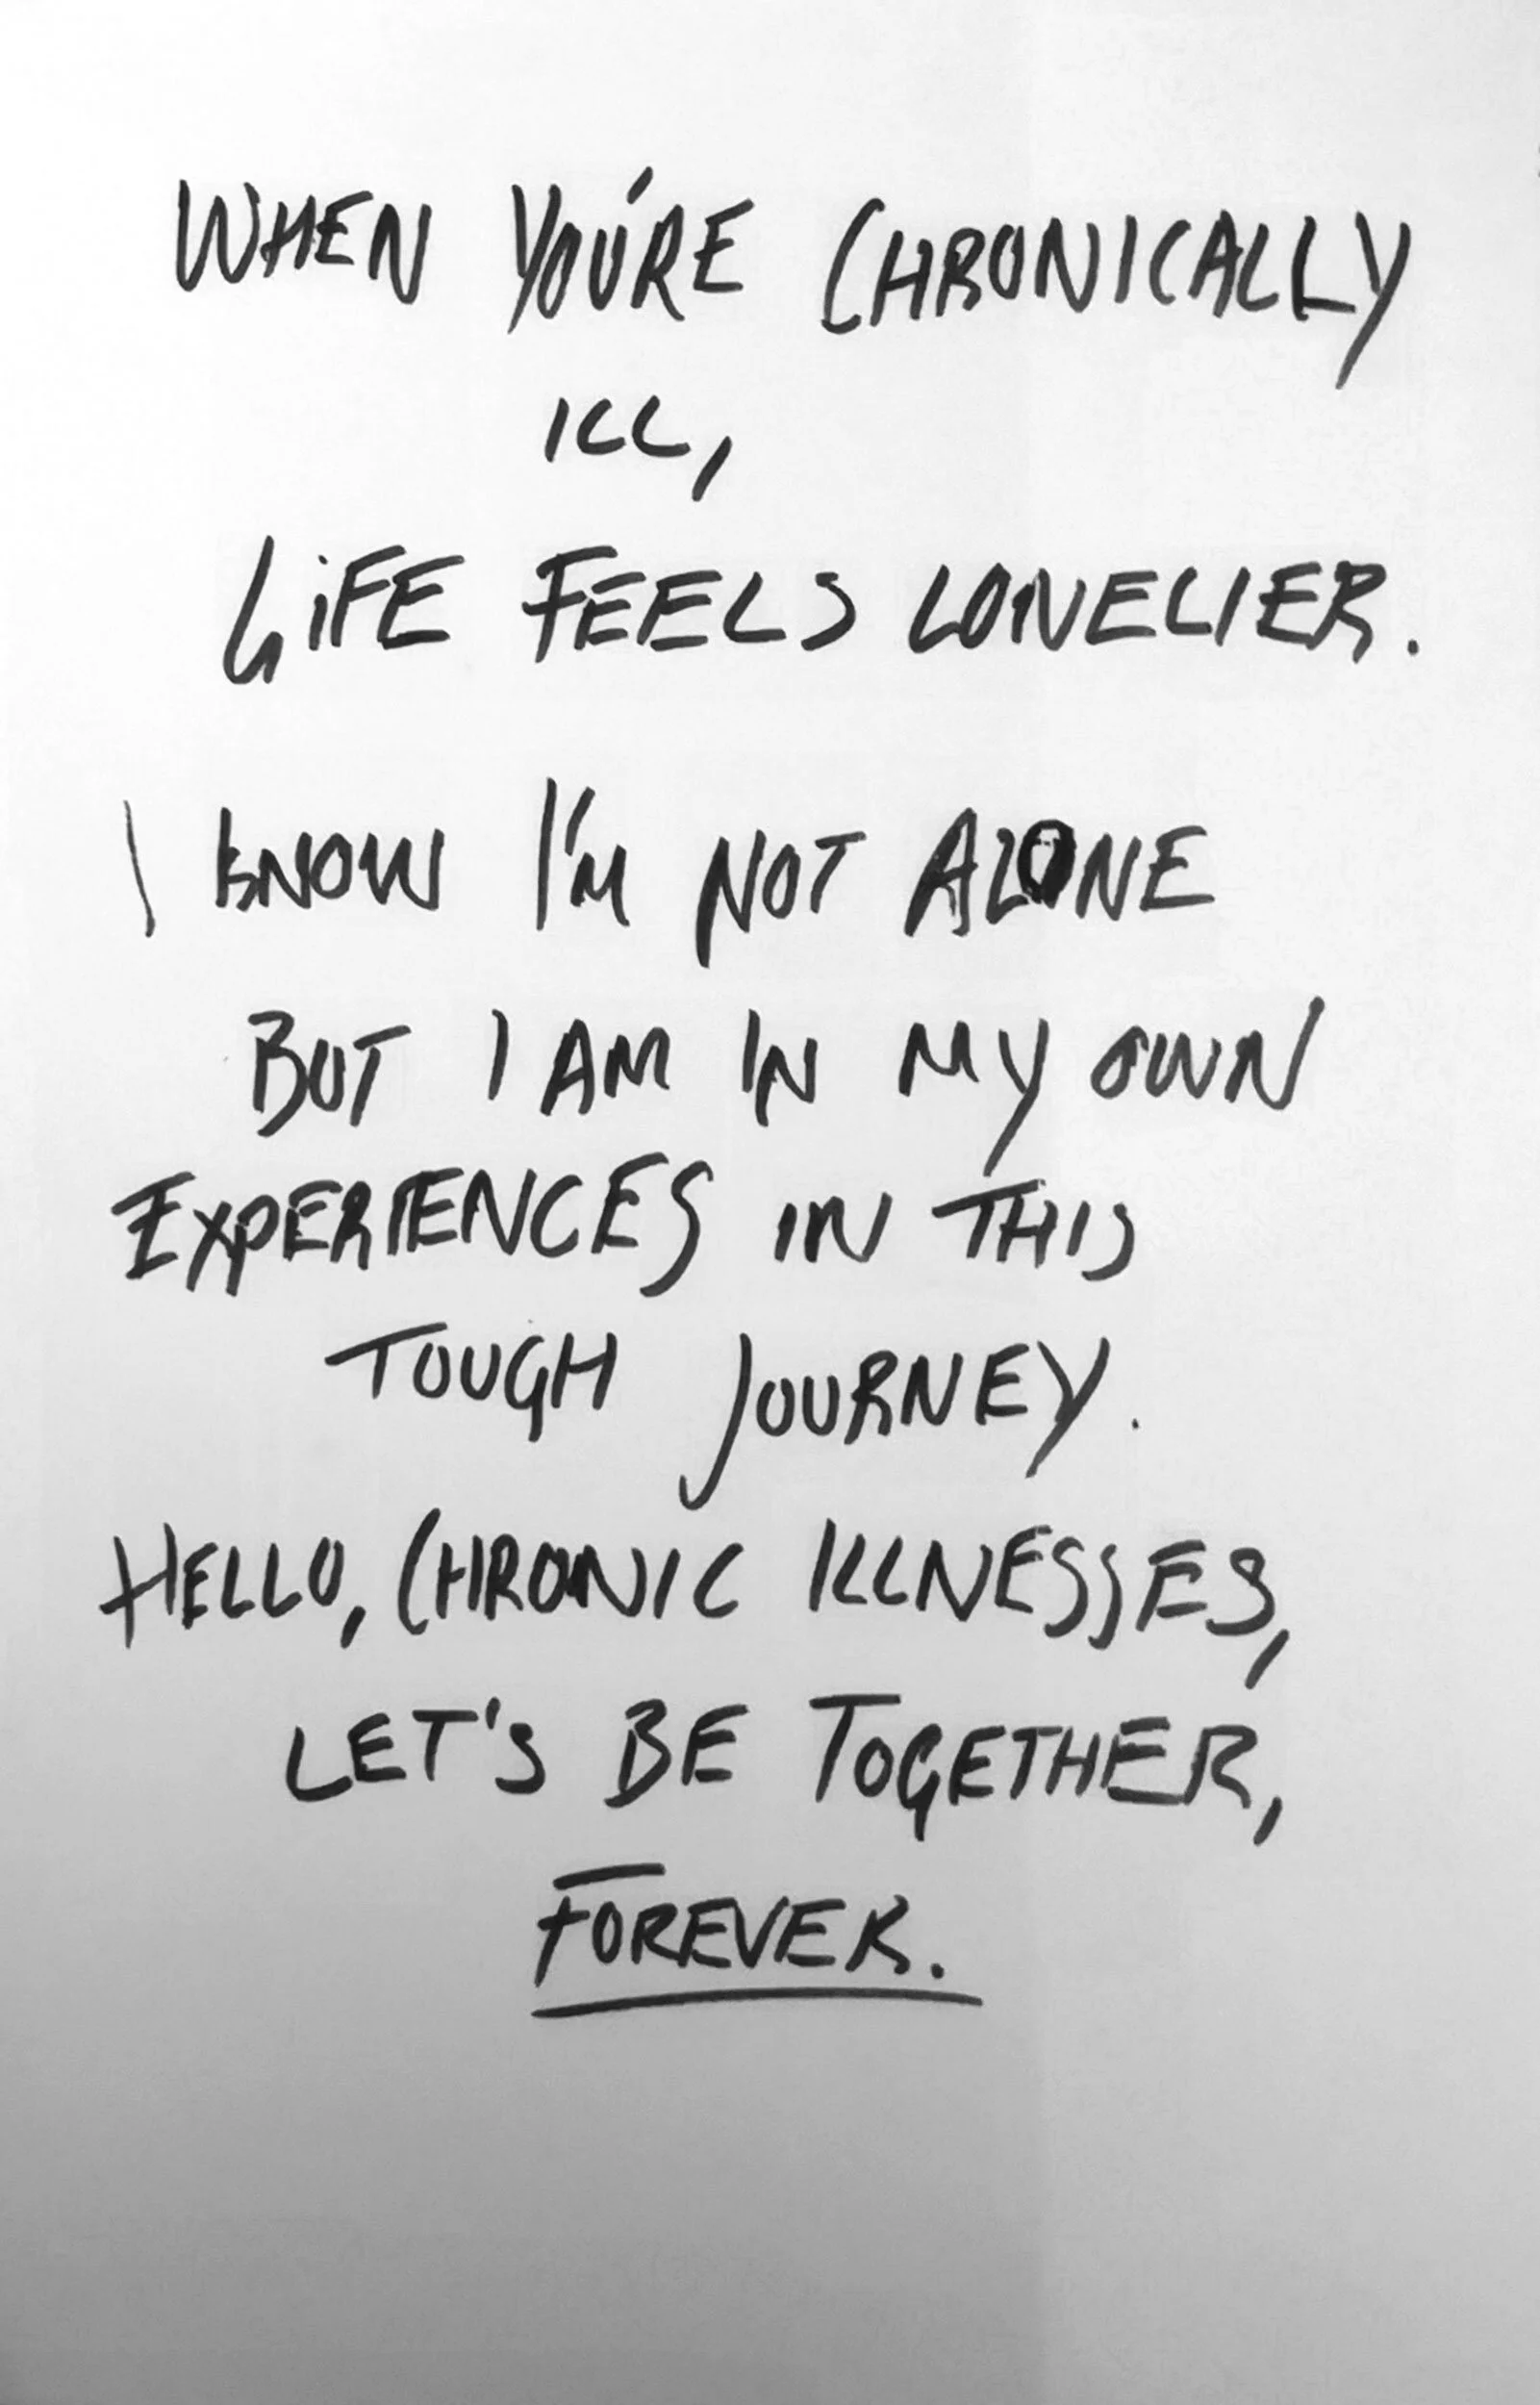 WHEN YOU'RE CHRONICALLY
ILL,
LiFE FEELS LONELIER.
I KNOW I'M NOT ALONE
BUT I AM IN MY OWN
EXPERIENCES IN THIS
TOUGH JOURNEY.
HELLO, CHRONIC ILLNESSES,
LET'S BE TOGETHER,
FOREVER.